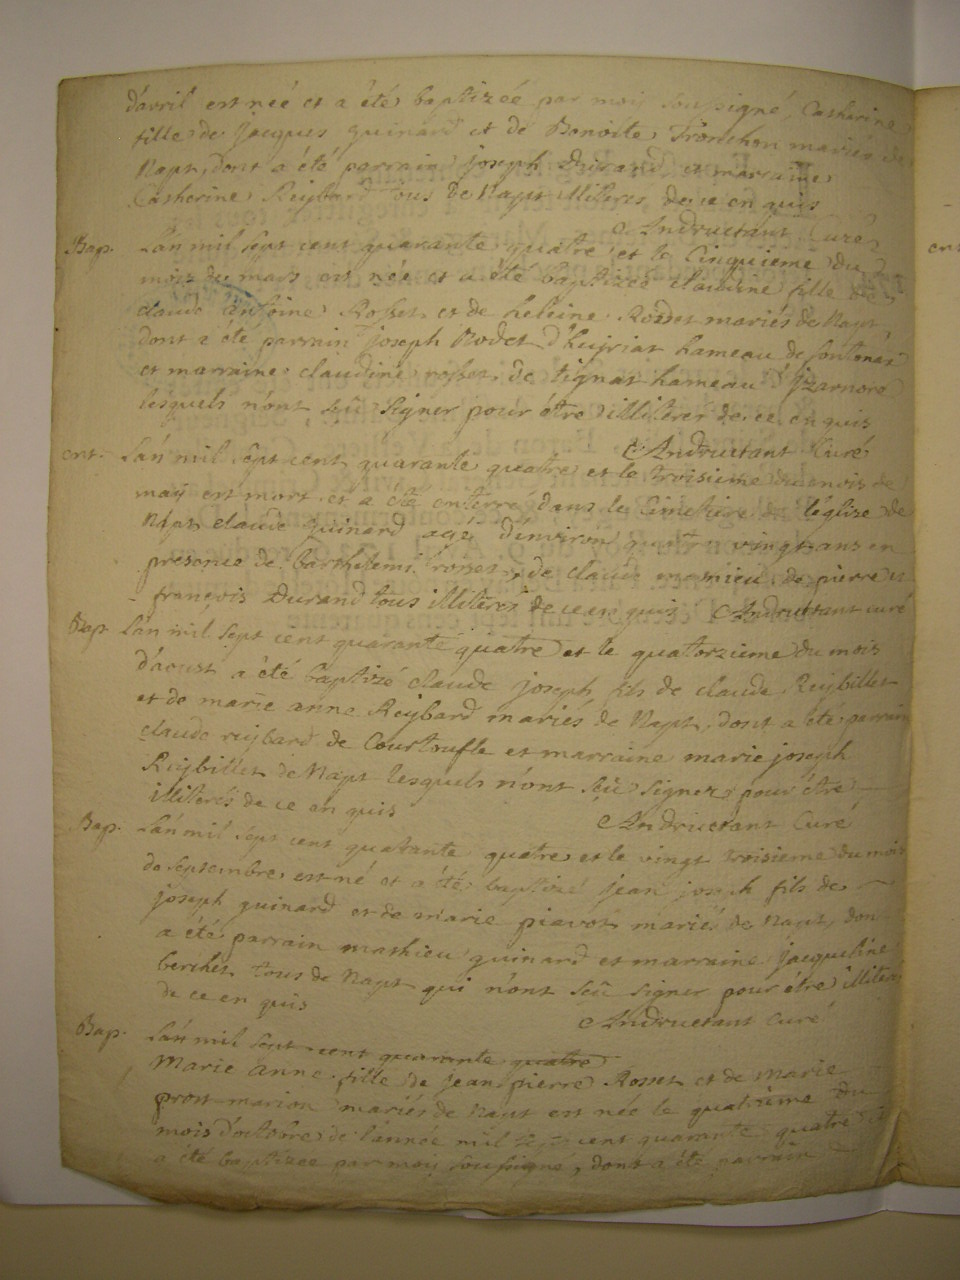 d'avril est née et a été baptizée par moi soussigné, Catherine
fille de Jacques guinard et de Benoite Tronchon mariés de
Napt, dont a été parrain joseph Durand et marraine
Catherine Reybard tous de Napt illiteres de ce en quis
Andructant Curé
Bap. L'an mil sept cent quarante quatre et le Cinquieme du
mois de mars est née et a été baptizée claudine fille de
claude antoine Rosset et de heleine Rosset mariés de Napt
dont a été parrain joseph Rodet d'heyriat hameau de sontonax
et marraine claudine rosset de tignat hameau d'jzarnore
lesquels n'ont seû signer pour être illiteres de ce en quis
Andructant Curé
ent. L'an mil sept cent quarante quatre et le troisieme du mois de
may est mort et a été enterré dans le Cimetiere de l'église de
Napt claude guinard agé d'environ quatre vingt ans en
presence de barthelemi rosset, de claude mathieu, de pierre et
françois Durand tous illiteres de ce en quis Andructant curé
Bap. L'an mil sept cent quarante quatre et le quatorzieme du mois
d'aoust a été baptizé claude joseph fils de claude Reybillet
et de marie anne Reybard mariés de Napt, dont a été parrain
claude reybard de Courtoufle et marraine marie joseph
Reybillet de Napt lesquels n'ont seû signer pour être
illiterés de ce en quis
Andructant Curé
Bap. L'an mil sept cent quarante quatre et le vingt troisieme du mois
de septembre est né et a été baptizé jean joseph fils de
joseph guinard et de marie mariés de Napt, don
a été parrain mathieu guinard et marraine jacqueline
berchet tous de Napt qui n'ont seû signer pour être illiteres
de ce en quis
Andructant Curé
Bap. L'an mil sept cent quarante quatre
Marie anne fille de jean pierre Rosset et de Marie
prost marion mariés de Napt est née le quatrième du
mois d'octobre de l'année mil sept cent quarante quatre
a été baptizée par moy soussigné, dont a été parrain